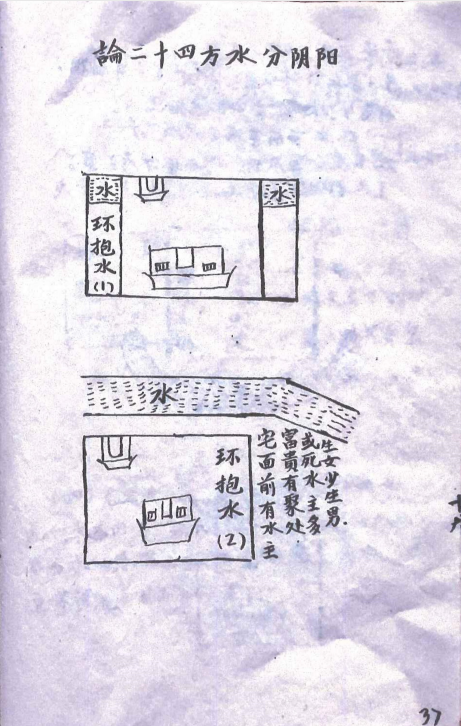 論二十四方水分阴阳
水
水
环抱水(1)
水
环抱水(2)
宅面前有水主
富貴有聚处
或死水主多
生女少生男.
37